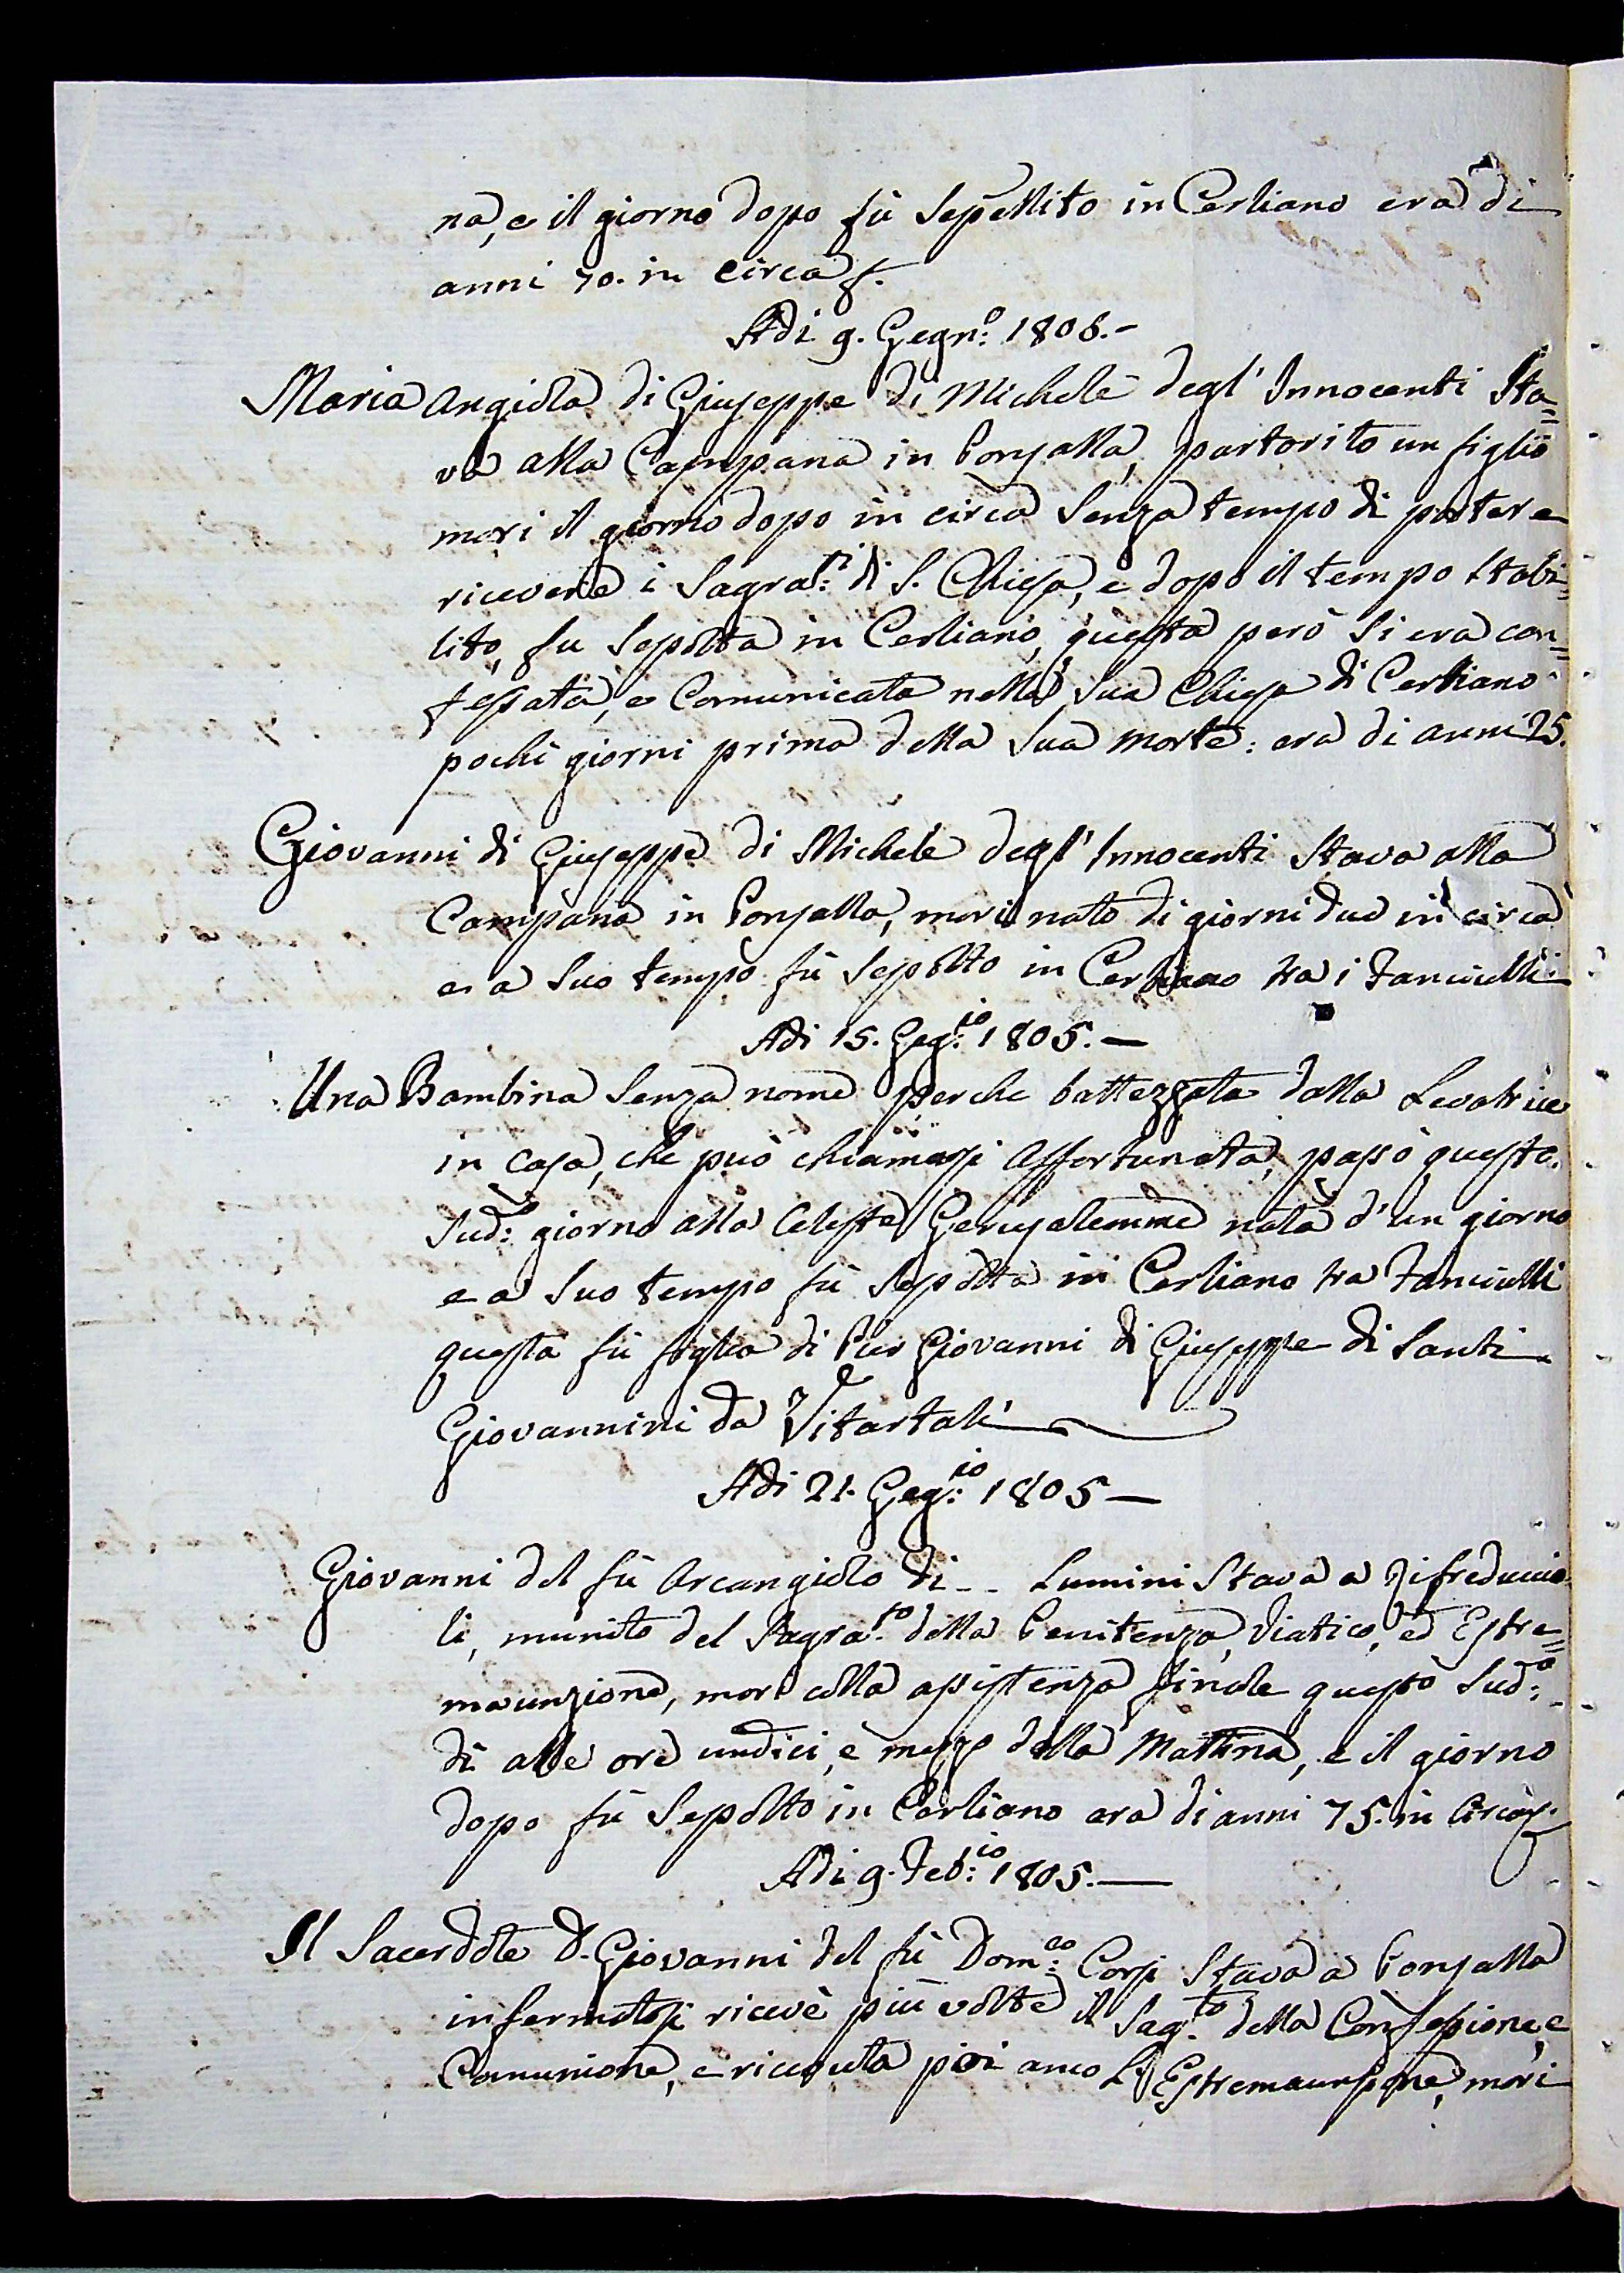 na, e il giorno dopo fù Sepellito in Cerliano era di
anni 70. in circa
Adi 9. Gegn:º 1805.-
Maria Angiola di Giuseppe di Michele degl' Innocenti Sta=
va alla Campana in Ponzalla, partorito un figlio
morì il giorno dopo in circa Senza tempo di potere
ricevere i Sagra:ti di S. Chiesa, e dopo il tempo Stabi=
lito, fu Sepolta in Cerliano, questa però Si era con=
fessata, e Comunicata nella Sua Chiesa di Cerliano
pochi giorni prima della Sua morte: era di anni 25.
Giovanni di Giuseppe di Michele degl' Innocenti Stava alla
Campana in Ponzalla, morì nato di giorni due in circa
e a Suo tempo fù Sepolto in Cerliano tra i Fanciulli
Adi 15. Geg:io 1805.—
Una Bambina Senza nome perche battezzata dalla Levatrice
in Casa, che può chiamassi Affortunata, passò questo
Sud:º giorno alla Celeste Gerusalemme nata d'un giorno
e a Suo tempo fù Sepolta in Cerliano tra Fanciulli
questa fù figlia di Pier Giovanni di Giuseppe di Santi
Giovannini da Vitartali
Adi 21. Geg:io 1805—
Giovanni del fù Arcangiolo di -- Lumini Stava a Rifreduccio
li, munito del Sagra:to della Penitenza, Viatico, ed Estre=
maunzione, morì colla assistenza finale questo Sud:º
dì alle ore undici, e mezzo della Mattina, e il giorno
dopo fù Sepolto in Cerliano era di anni 75. in Circa
Adi 9. Feb:io 1805.—
Il Sacerdote D. Giovanni del fù Dom:co Corsi Stava a Ponzalla
infermatosi ricevè più volte il Sag:to della Confessione, e
Comunione, e ricevuta poi anco L'Estremaunzione, morì